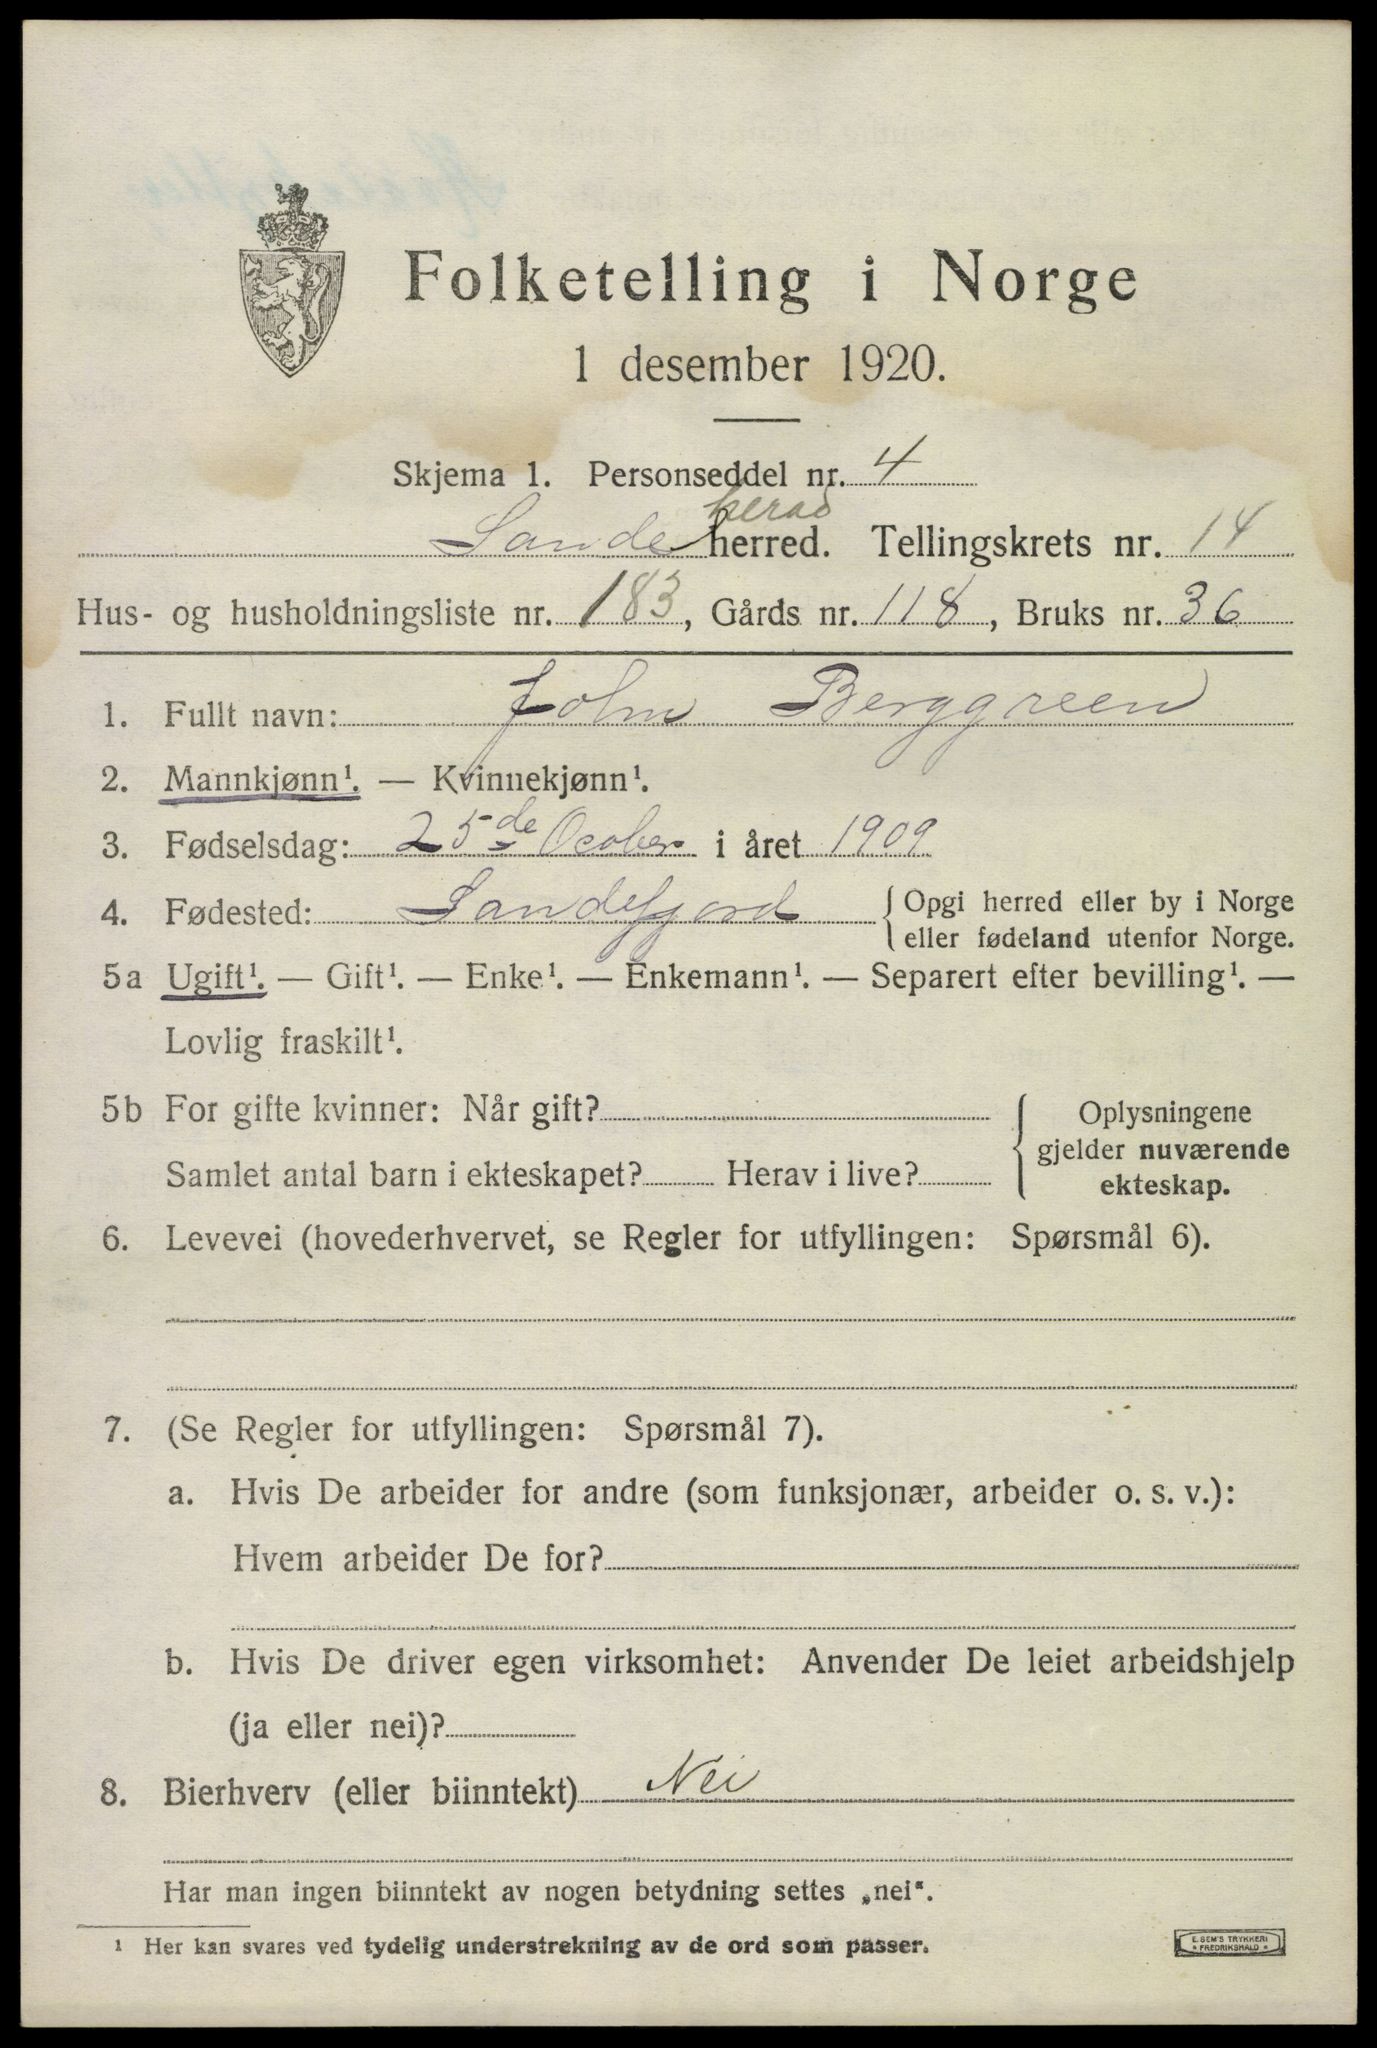 Folketelling i Norge
1 desember 1920.
Skjema 1. Personseddel nr. 4
herad
Sande herred. Tellingskrets nr. 14
Hus- og husholdningsliste nr. 183, Gårds nr. 118, Bruks nr. 36
1. Fullt navn: John Berggreen
2. Mannkjønn¹. — Kvinnekjønn¹.
3. Fødselsdag: 25de Ocober i året 1909
4. Fødested: Sandefjord { Opgi herred eller by i Norge
eller fødeland utenfor Norge.
5a Ugift¹. — Gift¹. — Enke¹. — Enkemann¹. — Separert efter bevilling¹. —
Lovlig fraskilt¹.
5b For gifte kvinner: Når gift?
Samlet antal barn i ekteskapet? Herav i live?
{ Oplysningene
gjelder nuværende
ekteskap.
6. Levevei (hovederhvervet, se Regler for utfyllingen: Spørsmål 6).
7. (Se Regler for utfyllingen: Spørsmål 7).
a. Hvis De arbeider for andre (som funksjonær, arbeider o. s. v.):
Hvem arbeider De for?
b. Hvis De driver egen virksomhet: Anvender De leiet arbeidshjelp
(ja eller nei)?
8. Bierhverv (eller biinntekt) Nei
Har man ingen biinntekt av nogen betydning settes „nei“.
¹ Her kan svares ved tydelig understrekning av de ord som passer.
E. SEM'S TRYKKERI
* FREDRIKSHALD *